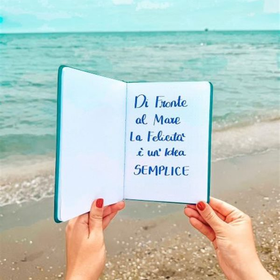 Di Fronte
al Mare
La Felicità
è un'Idea
SEMPLICE